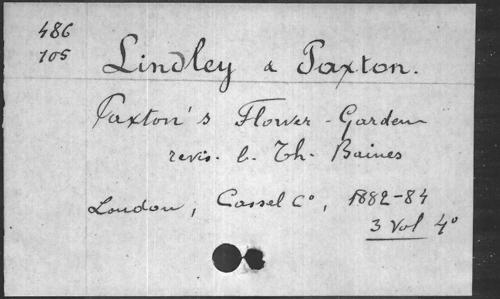 486
105
Lindley & Paxton.
Paxton's Flower-Garden
revis. b. Th. Baines
London, Cassel Cº, 1882-84
3 Vol 4º